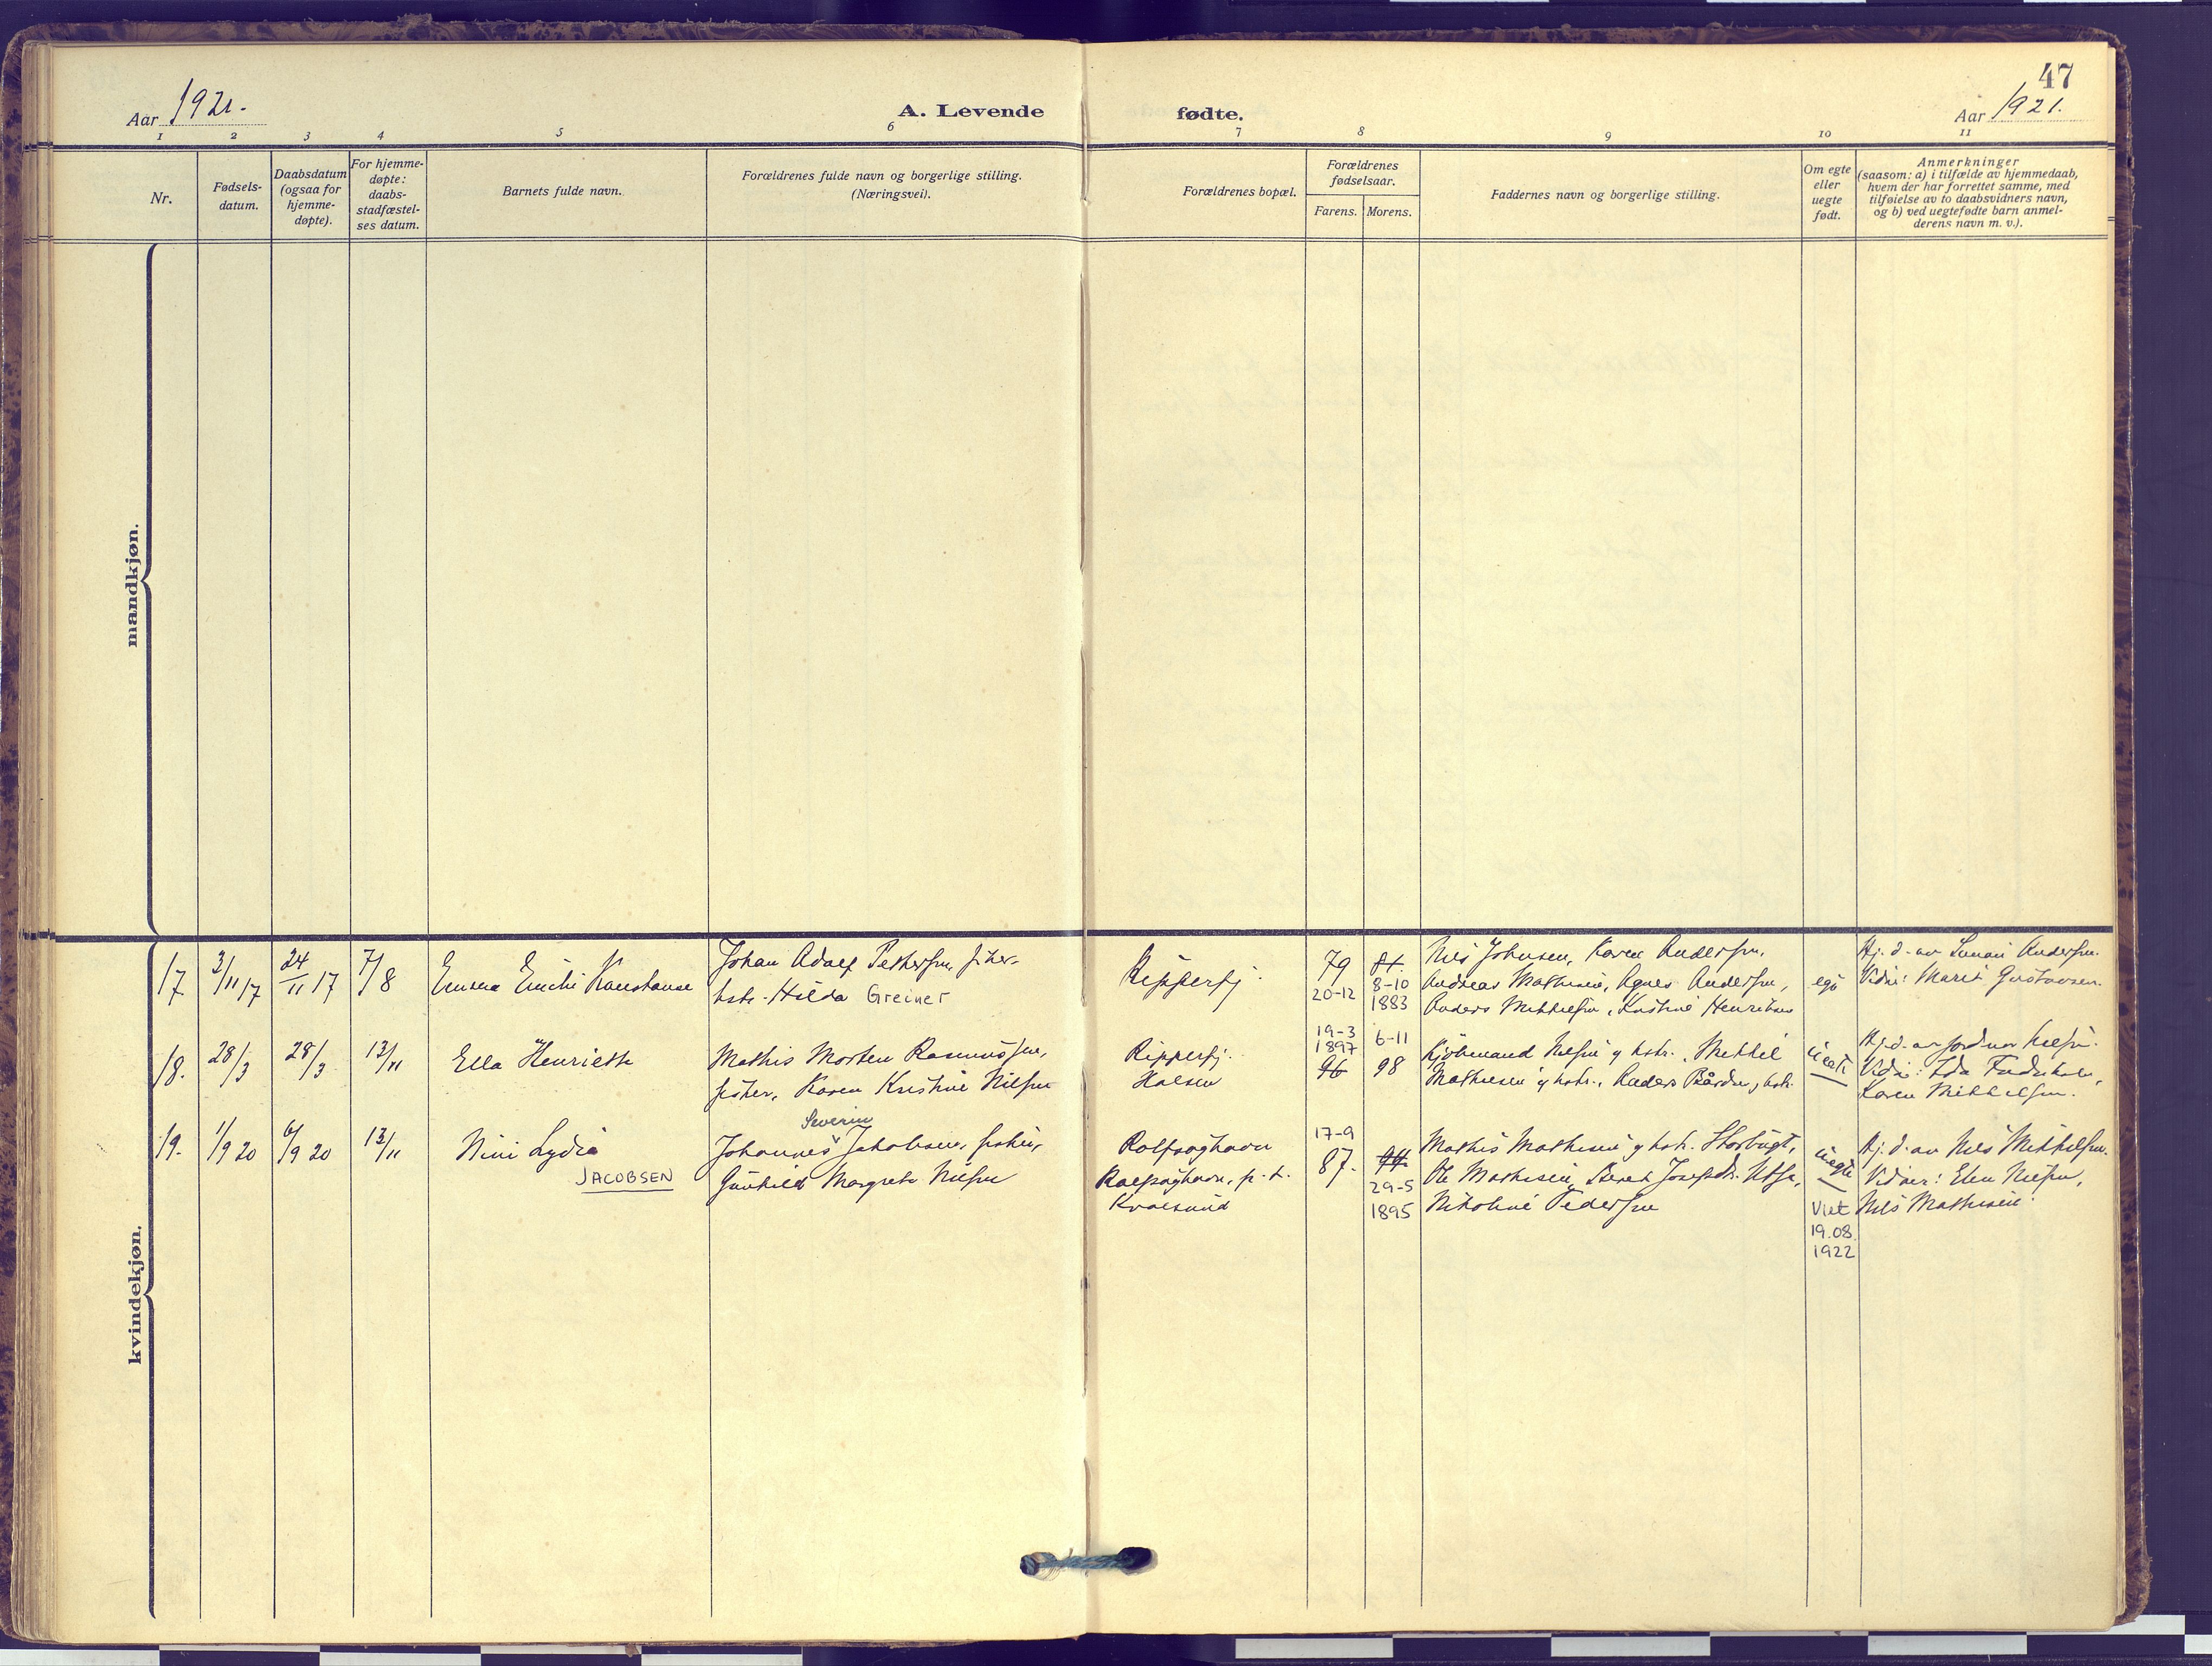 47
Aar 1921.
A. Levende fødte.
Aar 1921.
1 2 3 4 5 6 7 8 9 10 11
Nr.
Fødsels-
datum.
Daabsdatum
(ogsaa for
hjemme-
døpte).
For hjemme-
døpte:
daabs-
stadfæstel-
ses datum.
Barnets fulde navn.
Forældrenes fulde navn og borgerlige stilling.
(Næringsvei).
Forældrenes bopæl.
Forældrenes
fødselsaar.
Farens. Morens.
Faddernes navn og borgerlige stilling.
Om egte
eller
uegte
født.
Anmerkninger
(saasom: a) i tilfælde av hjemmedaab,
hvem der har forrettet samme, med
tilføielse av to daabsvidners navn,
og b) ved uegtefødte barn anmel-
derens navn m. v.).
mandkjøn.
kvindekjøn.
17
3/11 17
24/11 17
7/8
Emma Emilie Konstanse
Johan Adolf Petersen, fisker
hstr. Hilda Greiner
Ripperfj.
79
20-12
81.
8-10
1883
Nils Johnsen, Karen Andersen,
Andreas Mathisen, Agnes Andersen,
Anders Mikkelsen, Kristine Henriksen
Hj. d. av Andersen.
Marit Gustavsen.
18.
28/3
28/3
13/11
Ella Henriette
Mathis Morten Rasmussen,
fisker, Karen Kristine Nilsen
Ripperfj.
Halsen
19-3
1897
96
6-11
98
Kjøbmand Nilsen og hstr., Mikkel
Mathisen og hstr., Anders hstr.
Hj. d. av jordmor Nilsen.
Vidn: Ida
Karen Mikkelsen.
19.
1/9 20
6/9 20
13/11
Nini Lydia
JACOBSEN
Severin
Johannes Jakobsen, fisker,
Gunhild Margrete Nilsen
Rolfsøghavn
Rolfsøghavn, p.t.
Kvalsund
17-9
87.
29-5
1895
Mathis Mathisen og hstr. Storbugt,
Ole Mathisen, Beret Josefsdtr.
Nikoline Pedersen
uegte
Viet
19.08.
1922
Hj. d. av Nils Mikkelsen.
Vidner: Elen Nilsen,
Nils Mathisen.